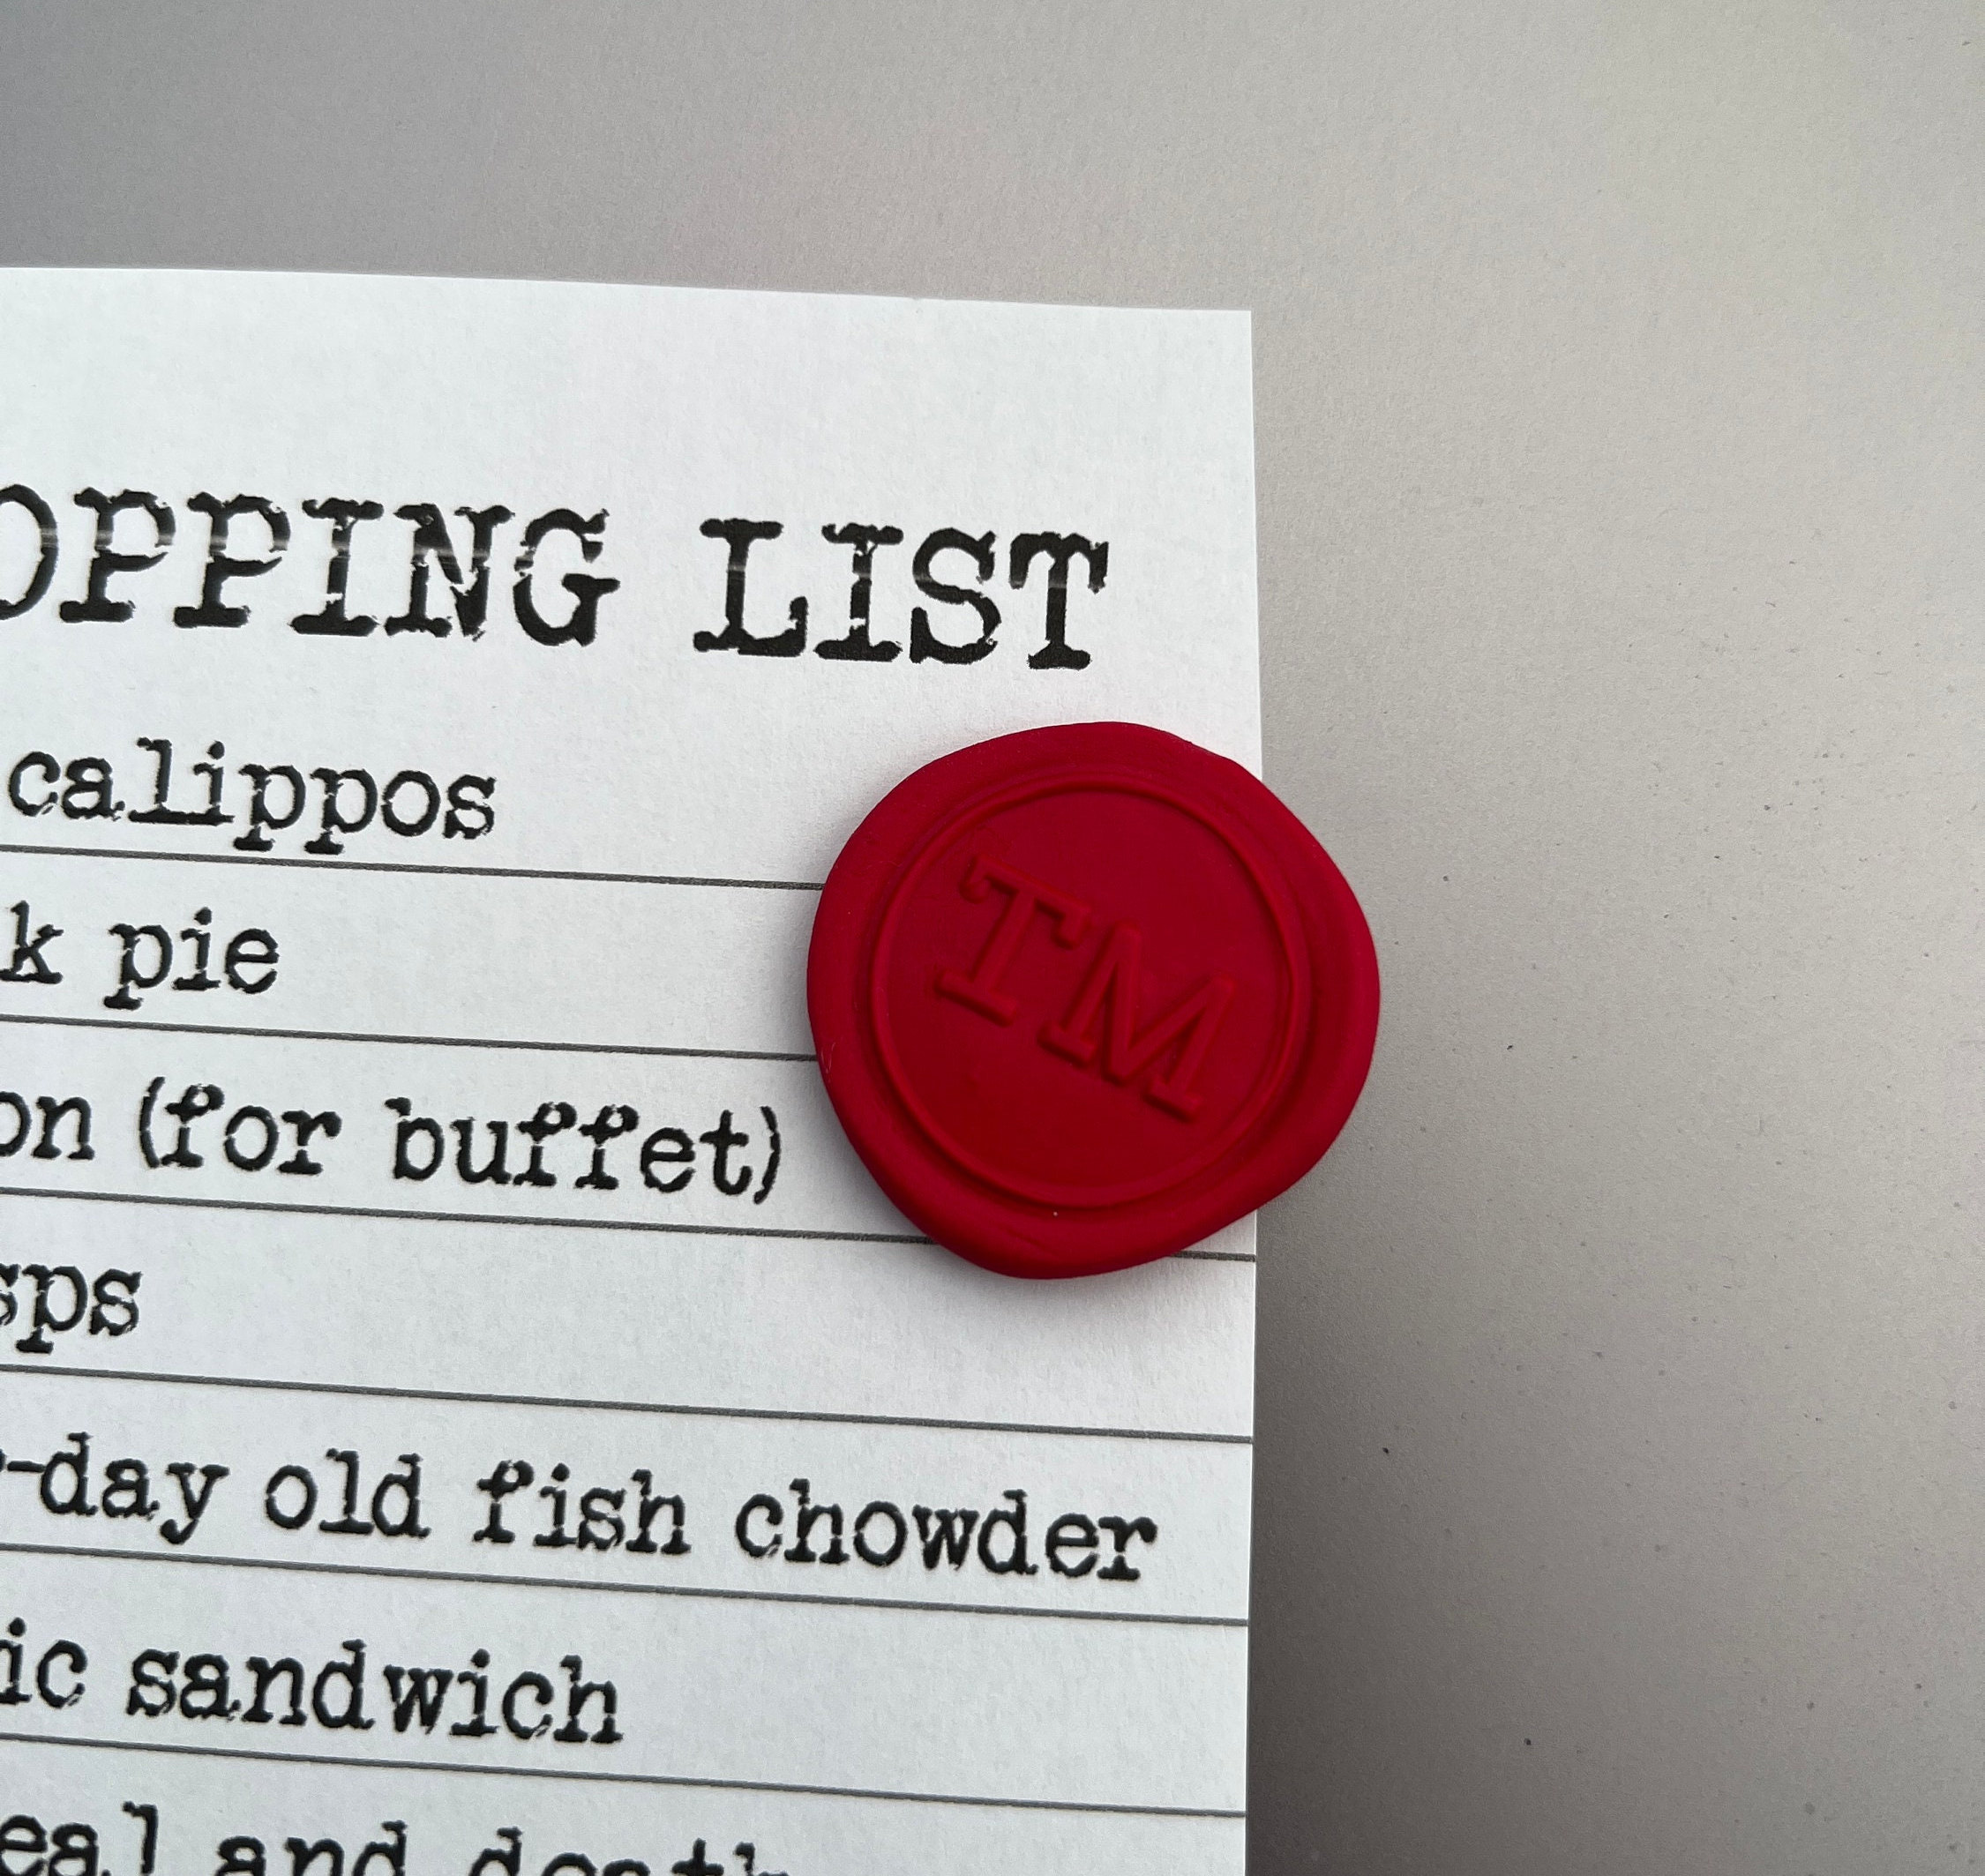 OPPING LIST
calippos
k pie
on (for buffet)
sps
-day old fish chowder
ic sandwich
eal and death
TM